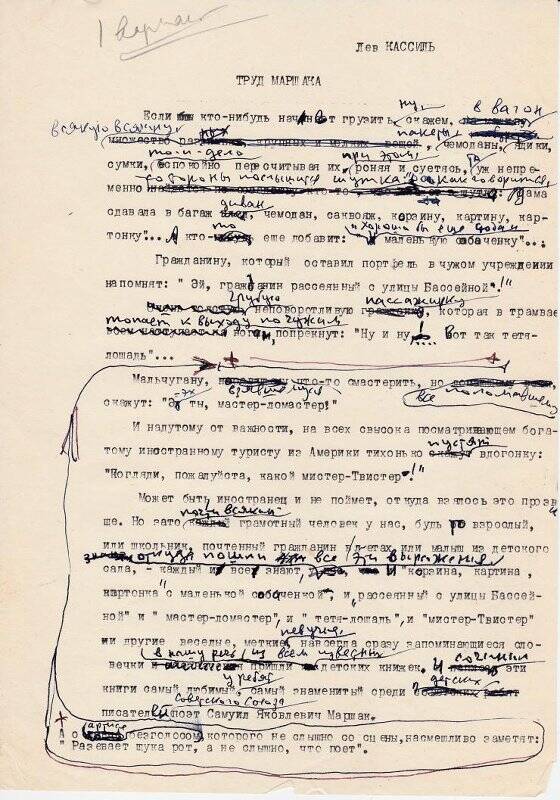 1 вариант
Лев КАССИЛЬ
ТРУД МАРШАКА
Если бы кто-нибудь начнет грузить, ну, скажем, в вагон
всякую всячину пакеты, чемоданы, ящики,
сумки, то-и-дело беспокойно пересчитывая их, при этом роняя и суетясь, то уж непре-
менно со стороны послышится шутка: Дама
сдавала в багаж диван, чемодан, саквояж, корзину, картину, кар-
тонку"... А кто-то еще добавит: "Хорошо бы еще маленькую собаченку"...
Гражданину, который оставил портфель в чужом учреждении
напомнят: " Эй, гражданин рассеянный с улицы Бассейной"!
Грубую неповоротливую пассажирку, которая в трамвае
топает к выходу по чужим ногам, попрекнут: "Ну и ну!... Вот так тетя-
лошадь"...
Мальчугану, взявшемуся что-то смастерить, но все поломавшему
скажут: "Эх ты, мастер-ломастер!"
И надутому от важности, на всех свысока посматривающем бога-
тому иностранному туристу из Америки тихонько пустят вдогонку:
"Погляди, пожалуйста, какой мистер-Твистер"!
Может быть иностранец и не поймет, откуда взялось это прозви
ще. Но зато почти всякий грамотный человек у нас, будь то взрослый,
или школьник, почтенный гражданин в летах или малыш из детского
сада, - каждый из всех знают, откуда пошли все эти выражения И "корзина, картина ,
картонка с маленькой собаченкой", и "рассеянный с улицы Бассей-
ной" и " мастер-ломастер", и " тетя-лошадь", и "мистер-Твистер"
и другие веселые, меткие, певучие, навсегда сразу запоминающиеся сло-
вечки в нашу речь пришли из всем известных детских книжек. И сочинил эти
книги самый любимый у ребят Советского Союза, самый знаменитый среди детских
писателей поэт Самуил Яковлевич Маршак.
А о артисте безголосом, которого не слышно со сцены, насмешливо заметят:
"Разевает щука рот, а не слышно, что поет".